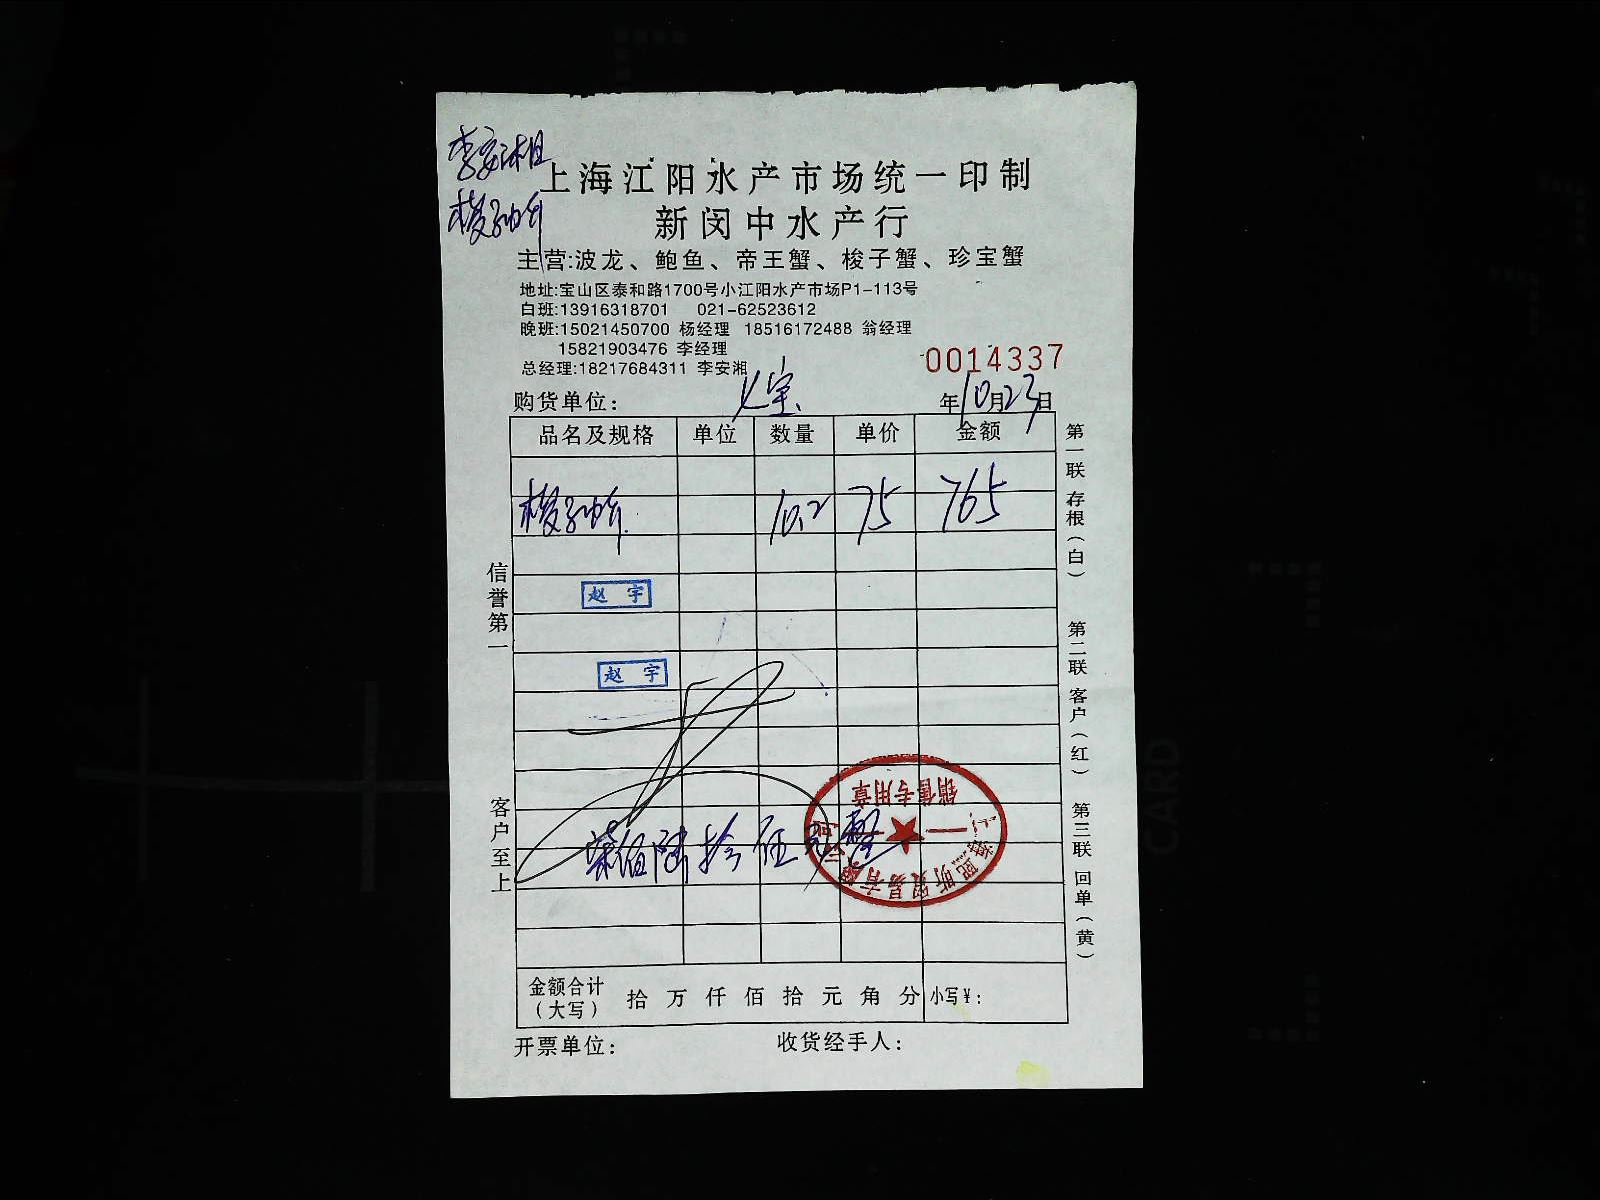 李安湘
梭子蟹
上海江阳水产市场统一印制
新闵中水产行
主营:波龙、鲍鱼、帝王蟹、梭子蟹、珍宝蟹
地址:宝山区泰和路1700号小江阳水产市场P1-113号
白班:13916318701 021-62523612
晚班:15021450700 杨经理 18516172488 翁经理
15821903476 李经理
总经理:18217684311 李安湘
0014337
购货单位: 七宝 年10月23日
品名及规格 单位 数量 单价 金额
梭子蟹 10.2 75 765
赵宇
赵宇
销售专用章
柒佰陆拾伍元整
金额合计(大写) 拾 万 仟 佰 拾 元 角 分 小写¥:
开票单位: 收货经手人:
信誉第一
客户至上
第一联 存根(白)
第二联 客户(红)
第三联 回单(黄)